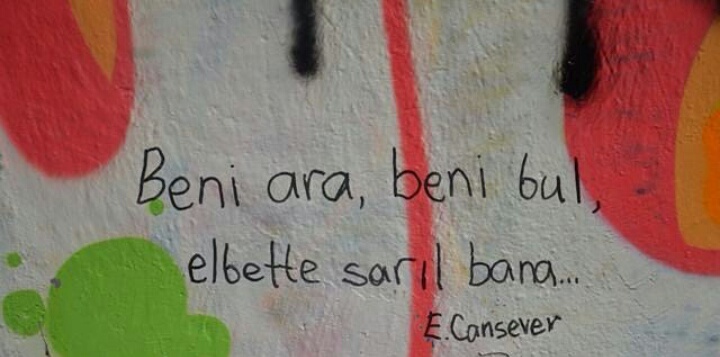 Beni ara, beni bul,
elbette sarıl bana...
E.Cansever